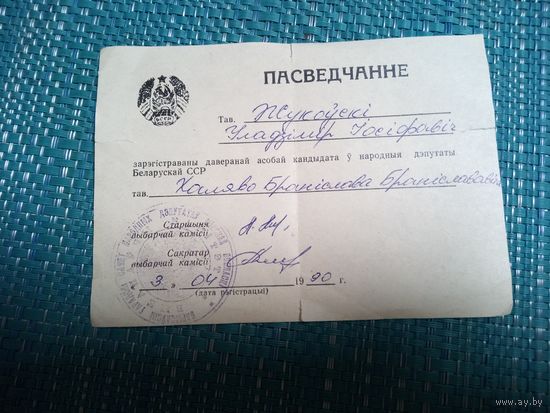 ПАСВЕДЧАННЕ
Тав. Жукоўскі
Уладзімір Іосіфавіч
зарэгістраваны даверанай асобай кандыдата ў народныя дэпутаты
Беларускай ССР
тав. Халява Браніслава Браніслававіча
Старшыня
выбарчай камісіі
Сакратар
выбарчай камісіі
"3" 04 1990 г.
(дата рэгістрацыі)
www.ay.by